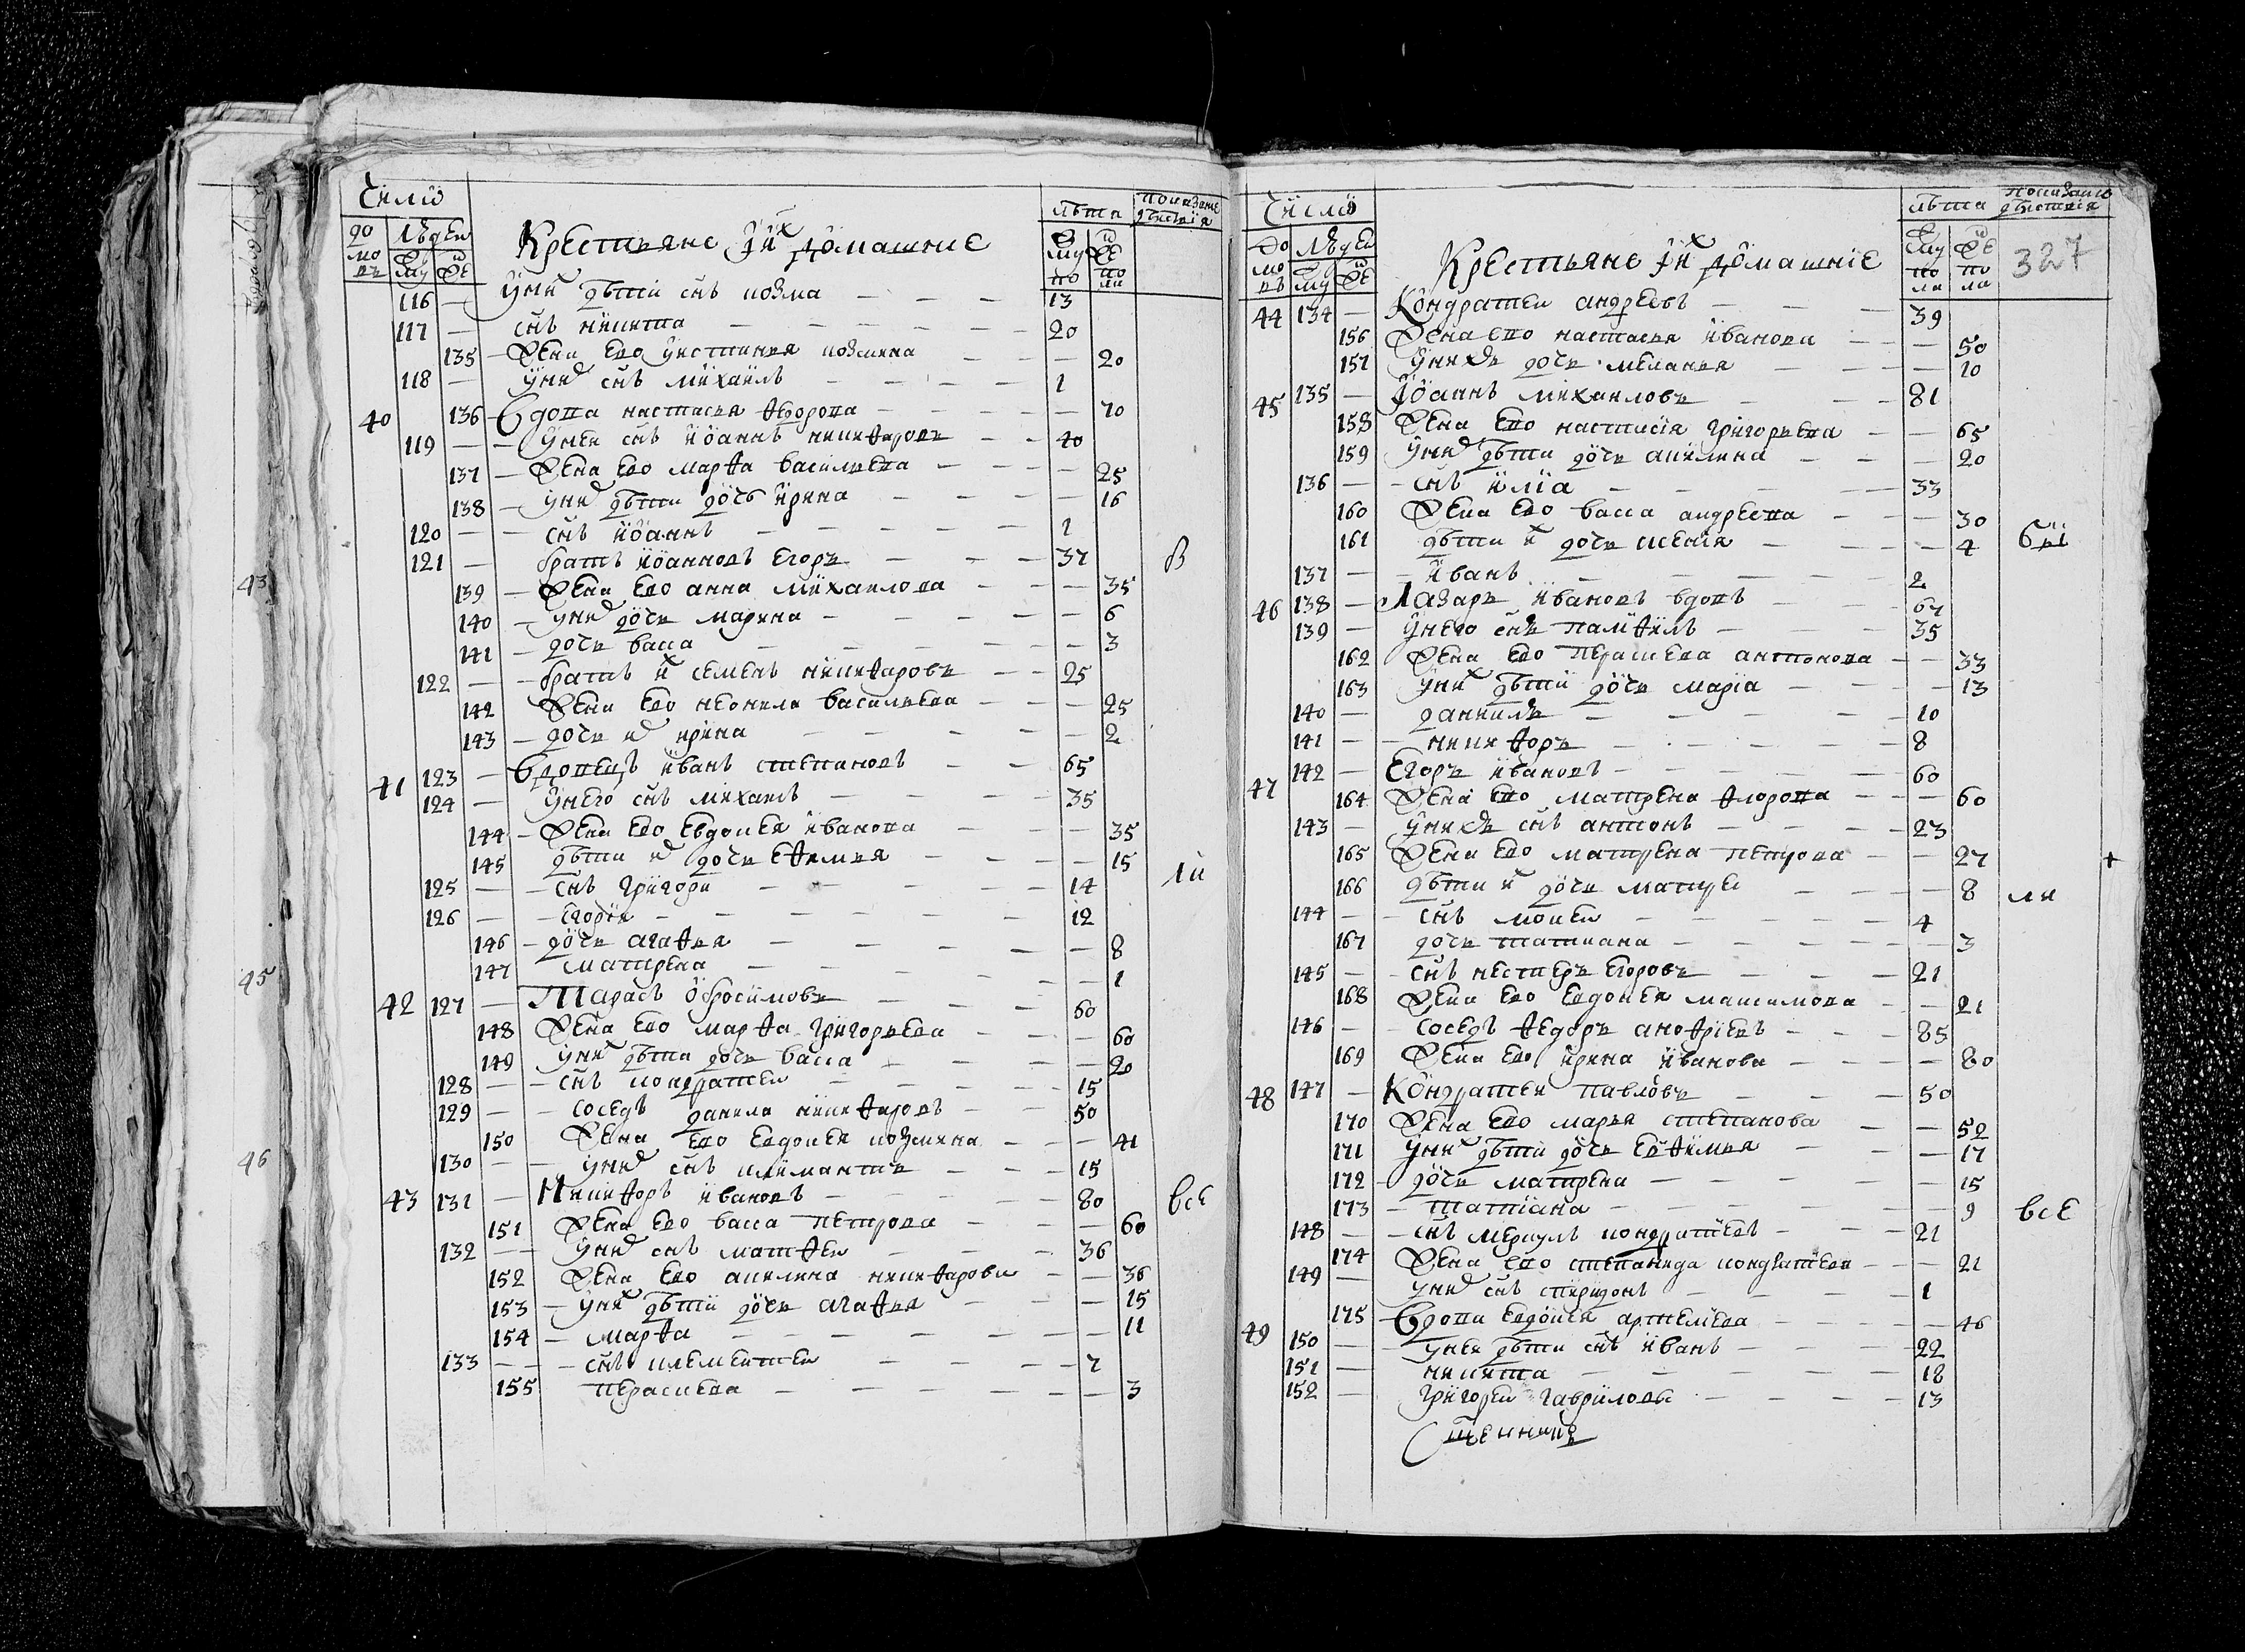 Число
домовъ
людей
муж
жен
Крестьяне и их домашние
лѣта
муж полу
жен пола
показание дѣйствия
116 — у них дѣти снъ козма — 13
117 — снъ никита — 20
135 — жена ево устинья козмина — 20
118 — у них снъ михаилъ — 1
40 136 — вдова настасья федорова — 70
119 — у неи снъ иоаннъ никифаровъ — 40
137 — жена ево марфа васильева — 25
138 — у них дѣти дочь ирина — 16
120 — снъ иоаннъ — 1
121 — братъ иоанновъ егоръ — 37
139 — жена ево анна михаилова — 35
140 — у них дочь марина — 6
141 — дочь васса — 3
122 — братъ их семенъ никифаровъ — 25
142 жена ево неонила васильева — 25
143 — дочь их ирина — 2
41 123 — вдовецъ иванъ степановъ — 65
124 — у него снъ михаилъ — 35
144 — жена ево евдокея иванова — 35
145 дѣти их дочь ефимья — 15
125 — снъ григори — 14
126 — егорiи — 12
146 — дочь агафья — 8
147 матрена — 1
42 127 — Тарасъ обросимовъ — 60
148 жена ево марфа григорьева — 60
149 у них дѣти дочь васса — 20
128 — снъ кондратеи — 15
129 — соседъ данила никифаровъ — 50
150 жена ево евдокея козмина — 41
130 — у них снъ климантъ — 15
43 131 — Никифоръ ивановъ — 80 все
151 жена ево васса петрова — 60
132 — у них снъ матфеи — 36
152 жена ево акилина никифарова — 36
153 — у них дѣти дочь агафья — 15
154 — марфа — 11
133 — снъ клементеи — 7
155 параскева — 3
43
45
46
Число
домовъ
людей
муж
жен
Крестьяне и их домашнiе
лѣта
муж пола
жен пола
показание дѣйствия
327
44 134 — Кондратеи андреевъ — 39
156 жена ево настасья иванова — 50
157 у нихъ дочь меланья — 10
45 135 — Иоаннъ михаиловъ — 81
158 жена ево настасiя григорьева — 65
159 у них дѣти дочь акилина — 20
136 — снъ илiа — 33
160 жена ево васса андреева — 30
161 дѣти их дочь ксенiя — 4
137 — иванъ — 2
46 138 — Лазарь ивановъ вдовъ — 67
139 — у него снъ памфилъ — 35
162 жена ево параскева антонова — 33
163 у них дѣти дочь марiа — 13
140 — данилъ — 10
141 — никифоръ — 8
47 142 — Егоръ ивановъ — 60
164 жена ево матрена флорова — 60
143 — у нихъ снъ антонъ — 23
165 жена ево матрена петрова — 27
166 дѣти их дочь матре — 8
144 — снъ мокеи — 4
167 дочь татиана — 3
145 — снъ нестеръ егоровъ — 21
168 жена ево евдокея максимова — 21
146 — соседъ федоръ анофрiевъ — 85
169 жена ево ирина иванова — 80
48 147 — Кондратеи павловъ — 50
170 жена ево марья степанова — 52
171 у них дѣти дочь евфимья — 17
172 — дочь матрена — 15
173 — татiана — 9 все
148 — снъ меркулъ кондратiевъ — 21
174 жена ево степанида кондратьева — 21
149 — у них снъ спиридонъ — 1
49 175 — вдова евдокея артемьева — 46
150 — у неи дѣти снъ иванъ — 22
151 — никита — 18
152 — григореи гавриловы — 13